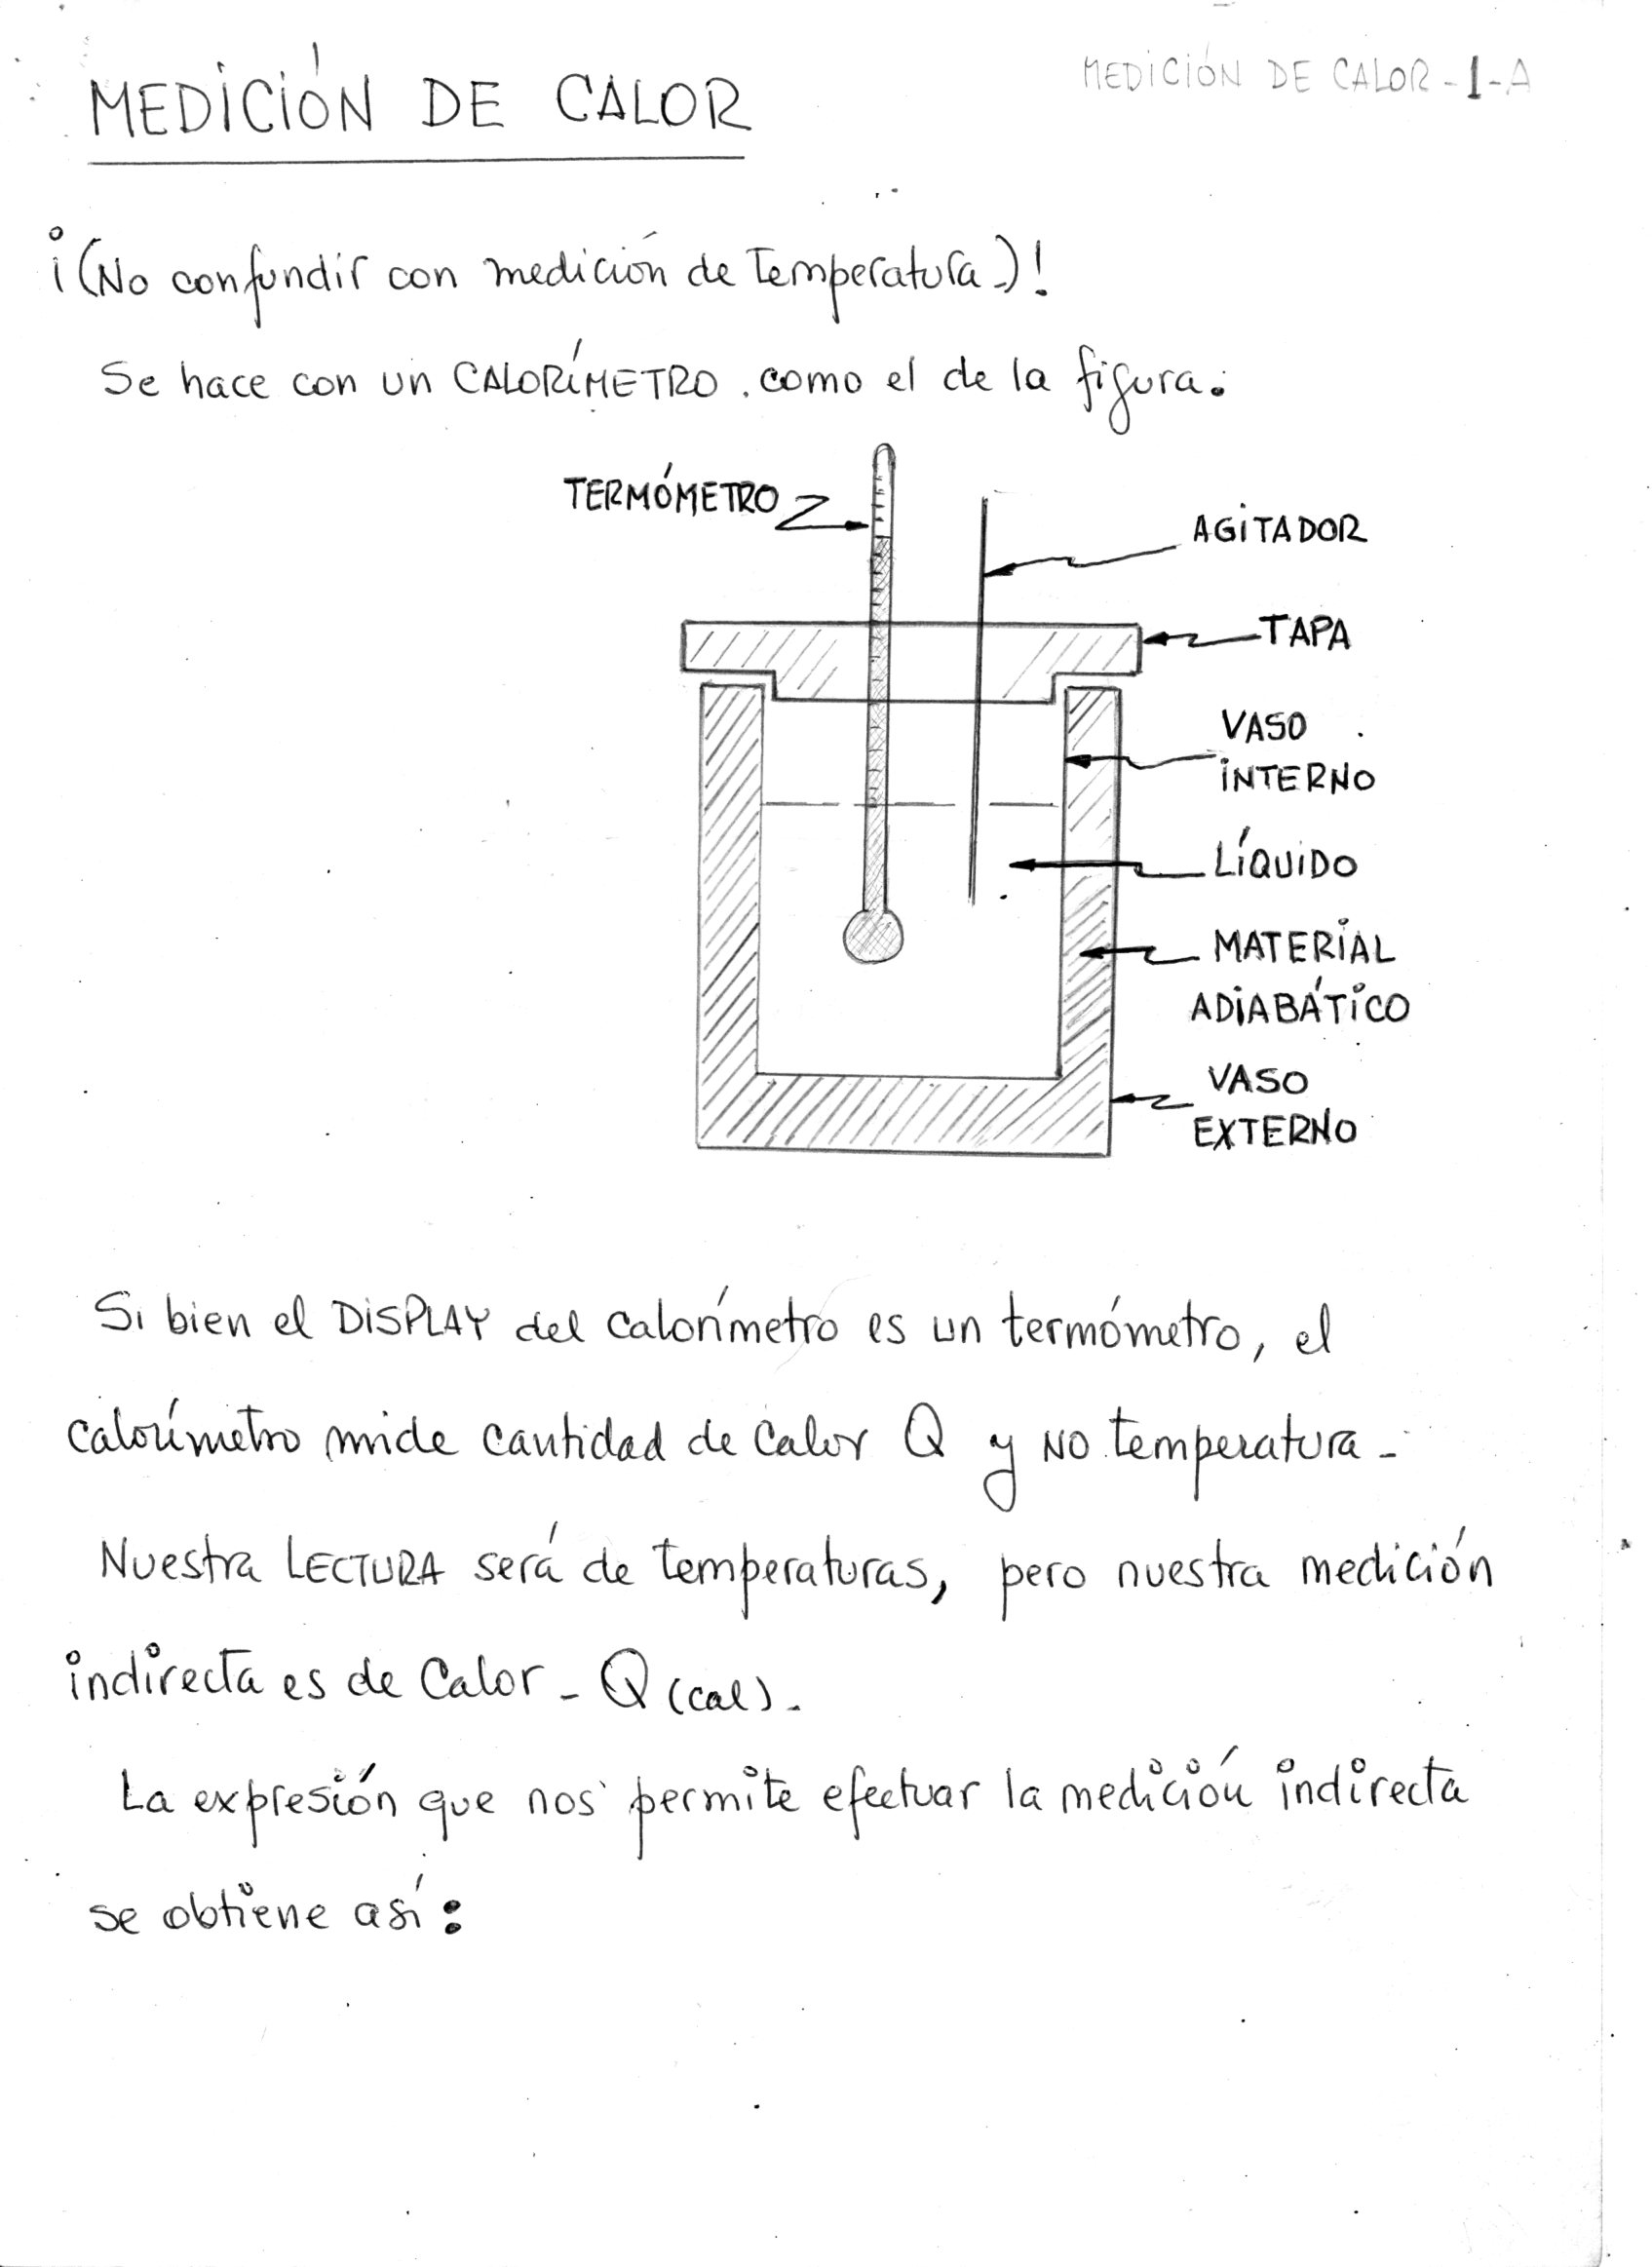 MEDICIÓN DE CALOR - 1 - A
MEDICIÓN DE CALOR
¡(No confundir con medición de Temperatura.)!
Se hace con un CALORÍMETRO. como el de la figura:
TERMÓMETRO
AGITADOR
TAPA
VASO
INTERNO
LÍQUIDO
MATERIAL
ADIABÁTICO
VASO
EXTERNO
Si bien el DISPLAY del calorímetro es un termómetro, el
calorímetro mide cantidad de Calor Q y NO temperatura -
Nuestra LECTURA será de temperaturas, pero nuestra medición
indirecta es de Calor - Q (cal) -
La expresión que nos permite efectuar la medición indirecta
se obtiene así: